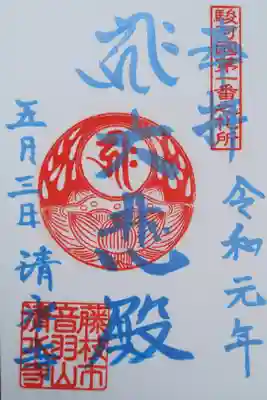 駿河國第一番札所
奉拝
令和元年
大悲殿
五月三日
清水寺
藤枝市
音羽山
清水寺